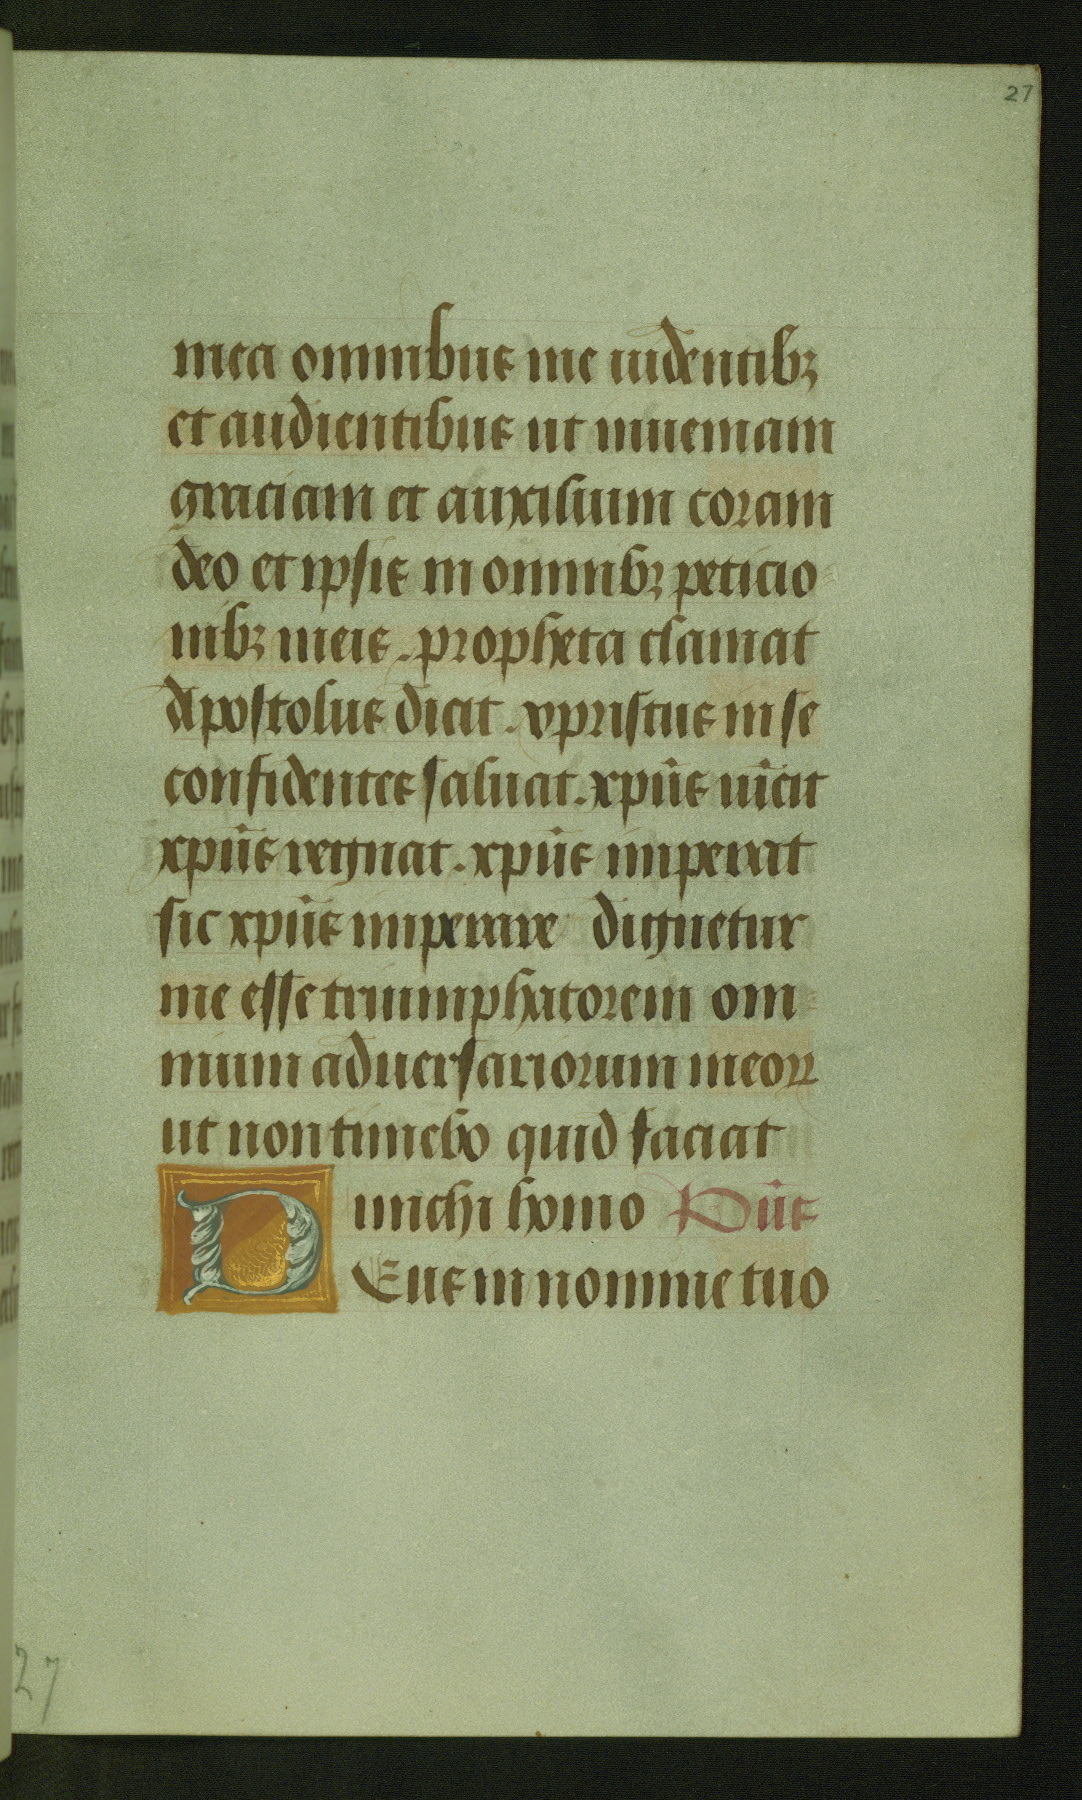 27
mea omnibus me uidentibꝫ
et audientibus ut inueniam
graciam et auxilium coram
deo et ipsis in omnibꝫ peticio
nibꝫ meis . propheta clamat
Apostolus dicit . xpristus in se
confidentes saluat . xpūs uīcit
xpūs regnat . xpūs imperat
sic xpūs imperare dignetur
me esse triumphatorem om
nium aduersariorum meoꝝ
ut non timebo quid faciat
michi homo Pūs
Deus in nomine tuo
27